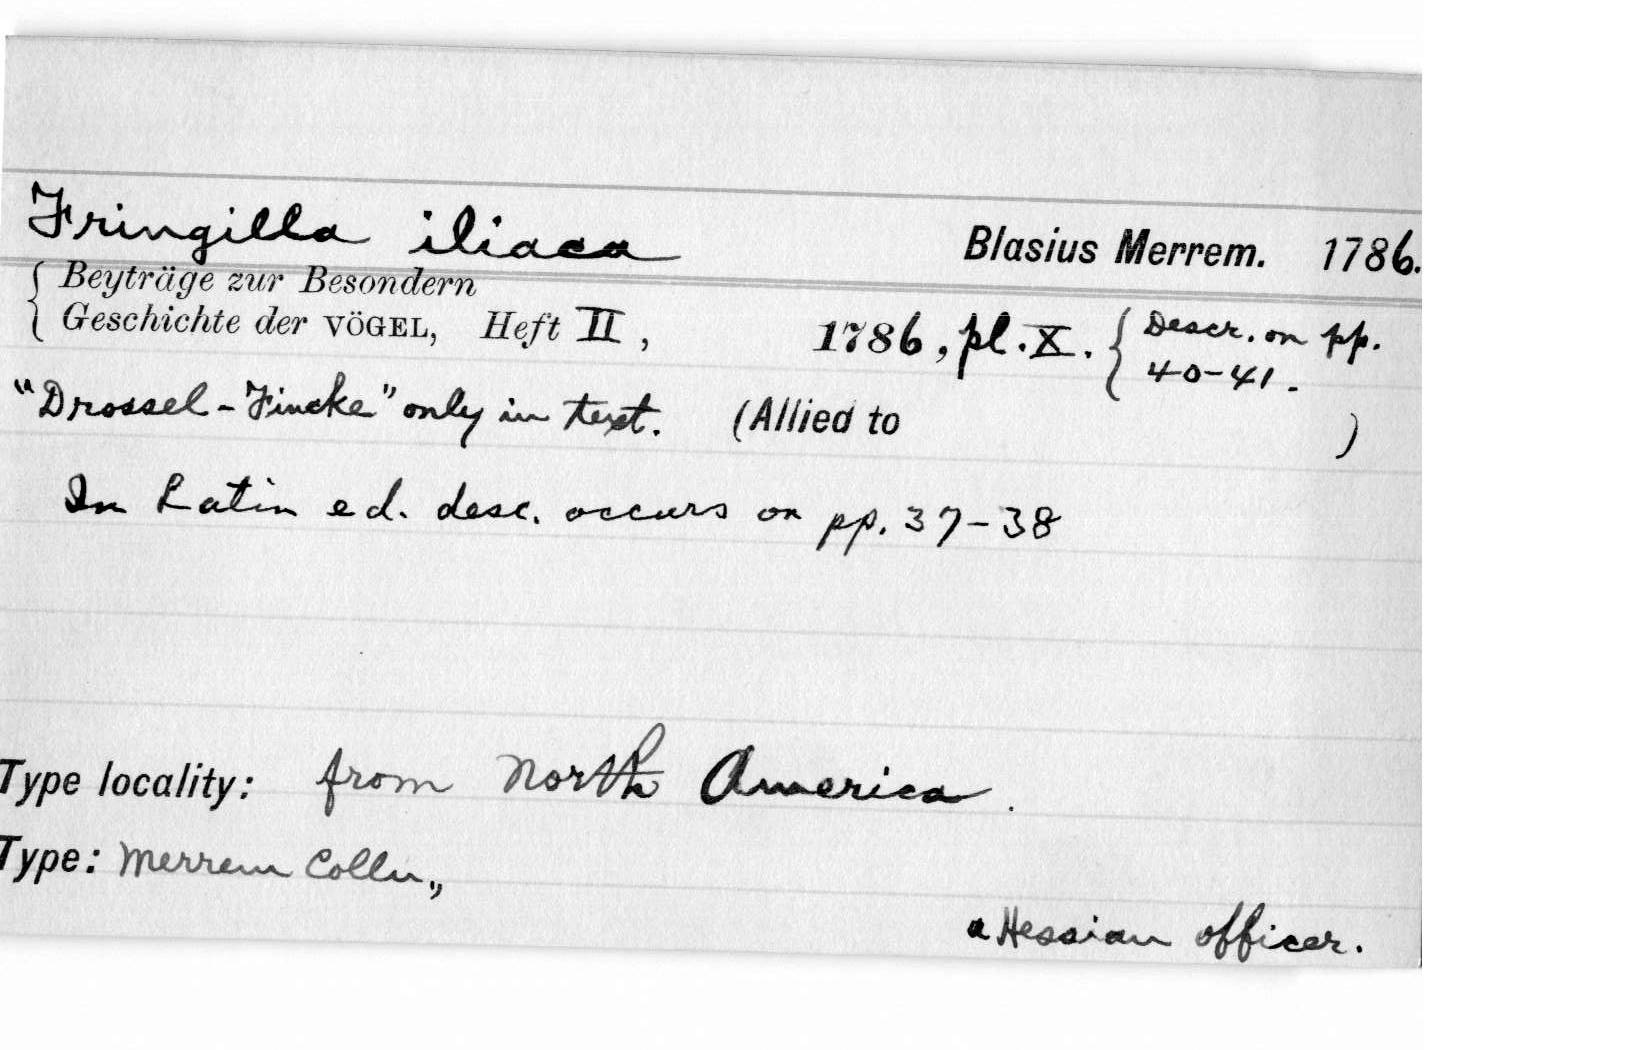 Fringilla iliaca Blasius Merrem. 1786.
{ Beyträge zur Besondern
Geschichte der VÖGEL, Heft II, 1786, pl. X. { Descr. on pp.
40-41.
"Drossel-Fincke" only in text. (Allied to )
In Latin ed. desc. occurs on pp. 37-38
Type locality: from North America.
Type: Merrem Colln.,
a Hessian officer.